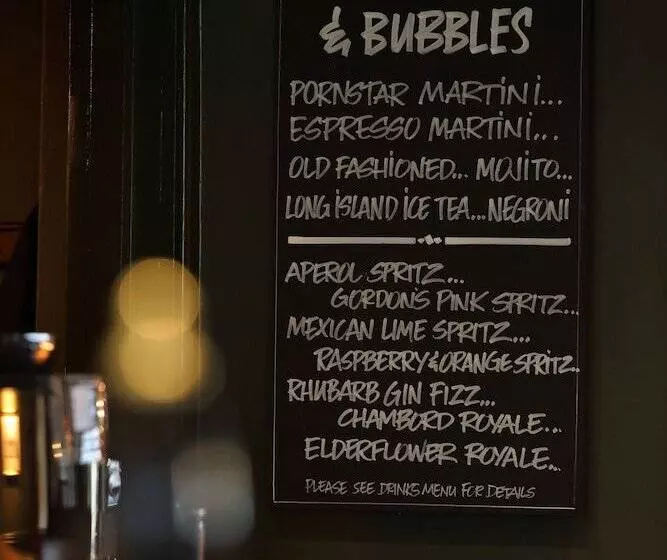 & BUBBLES
PORNSTAR MARTINI...
ESPRESSO MARTINI...
OLD FASHIONED... MOJITO...
LONG ISLAND ICE TEA... NEGRONI
APEROL SPRITZ...
GORDON'S PINK SPRITZ...
MEXICAN LIME SPRITZ...
RASPBERRY & ORANGE SPRITZ..
RHUBARB GIN FIZZ...
CHAMBORD ROYALE...
ELDERFLOWER ROYALE...
PLEASE SEE DRINKS MENU FOR DETAILS